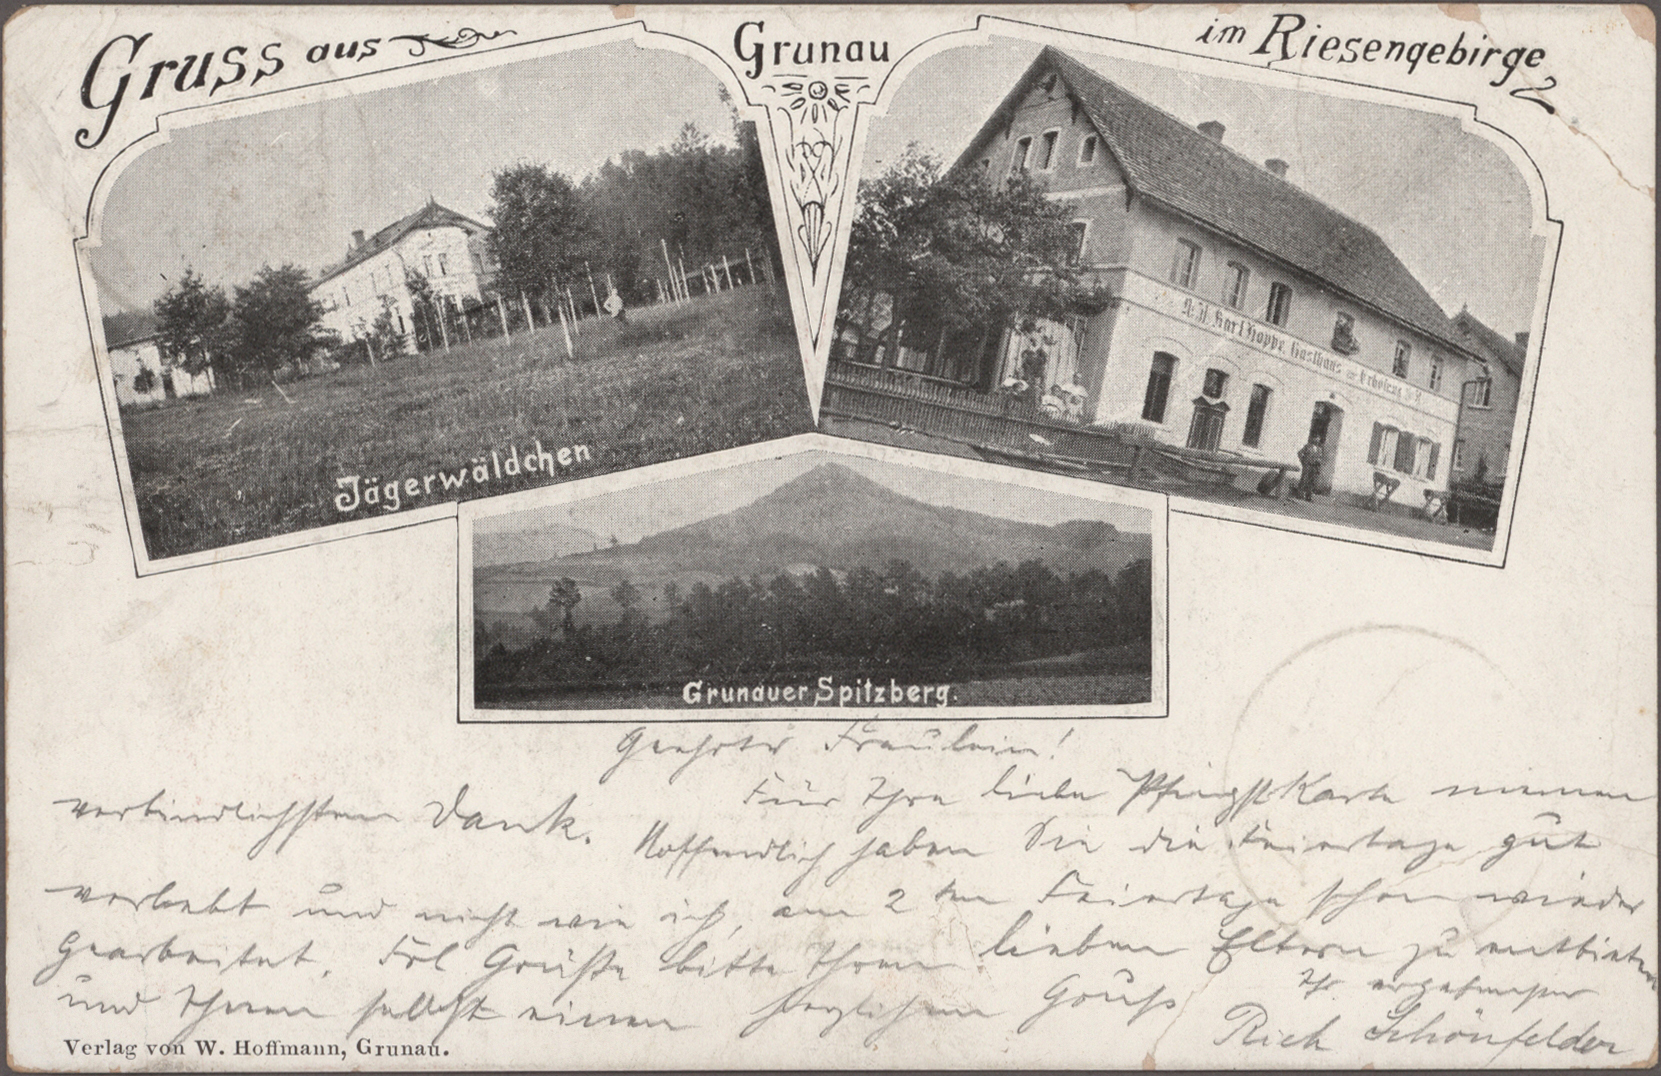 Gruss aus
Grunau
im Riesengebirge
Jägerwäldchen
Karl Hoppe, Gasthaus
Grunauer Spitzberg.
Geehrtes Fräulein!
Für Ihre liebe Pfingst Karte meinen
verbindlichsten Dank. Hoffendlich haben Sie die Feiertage gut
verlebt und nicht wie ich, am 2 ten Feiertage schon wieder
gearbeitet. Grüße bitte Ihren lieben Eltern zu
und Ihnen selbst einen herzlichen Gruß
Ihr ergebenster
Rich Schönfelder
Verlag von W. Hoffmann, Grunau.